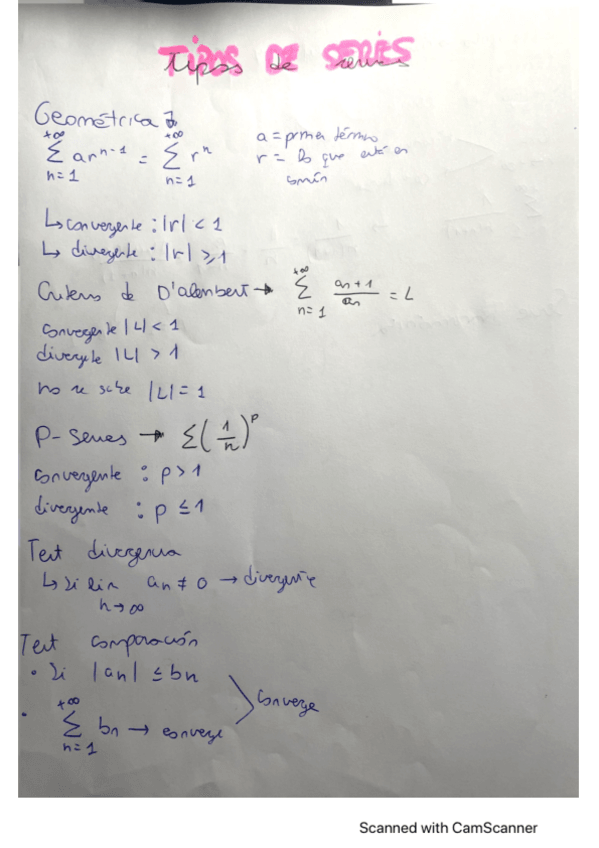 Tipos de series
Geométrica
+∞ ∑ n=1 ar^(n-1) = +∞ ∑ n=1 r^n
a = primer término
r = lo que está en
común
↳ convergente : |r| < 1
↳ divergente : |r| ≥ 1
Criterio de D'alembert → +∞ ∑ n=1 an+1 / an = L
convergente |L| < 1
divergente |L| > 1
no se sabe |L| = 1
P-series → ∑(1/n)^p
convergente : p > 1
divergente : p ≤ 1
Test divergencia
↳ si lim n→∞ an ≠ 0 → divergente
Test comparación
• Si |an| ≤ bn
converge
• +∞ ∑ n=1 bn → converge
Scanned with CamScanner